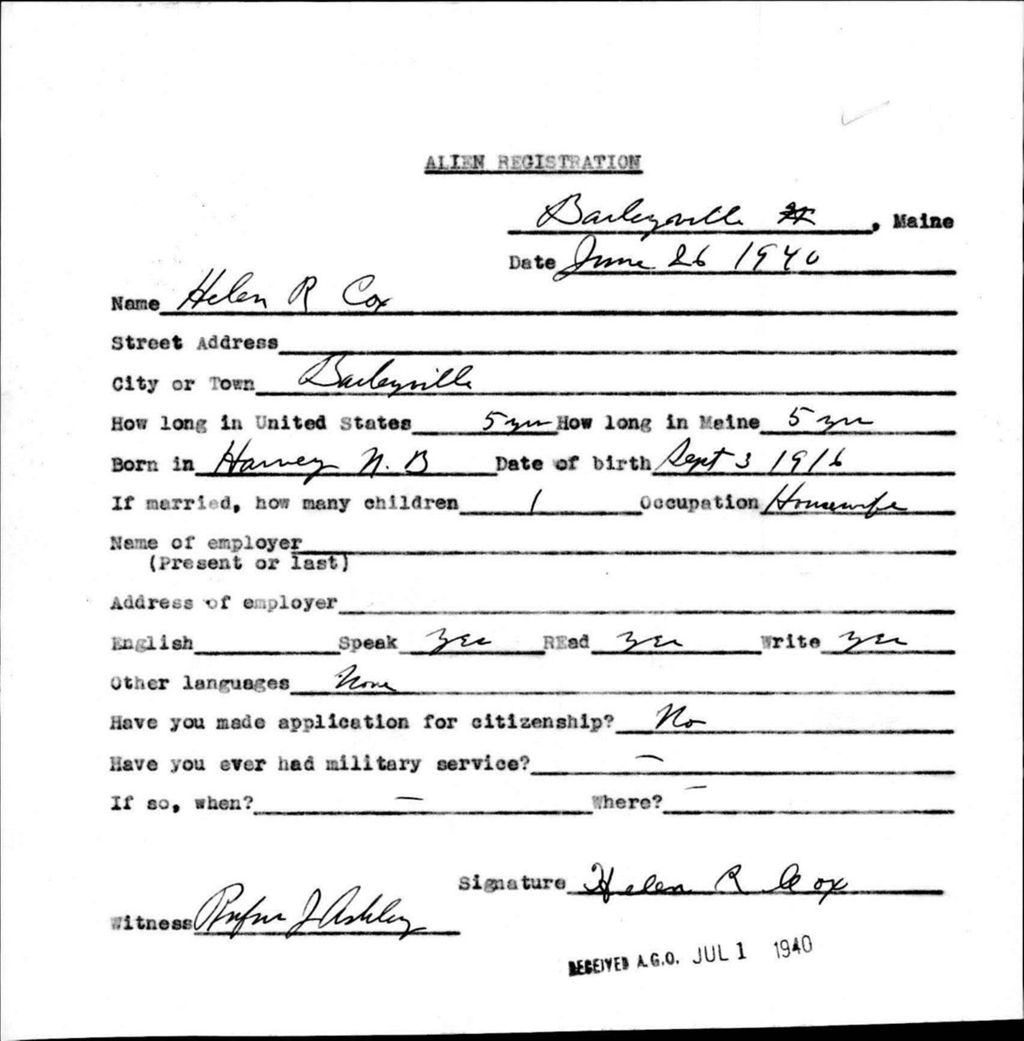 ALIEN REGISTRATION
Baileyville, Maine
Date June 26 1940
Name Helen R Cox
Street Address
City or Town Baileyville
How long in United States 5 yrs How long in Maine 5 yrs
Born in Harvey N.B Date of birth Sept 3 1916
If married, how many children 1 Occupation Housewife
Name of employer
(Present or last)
Address of employer
English Speak yes REad yes Write yes
Other languages None
Have you made application for citizenship? No
Have you ever had military service? —
If so, when? — Where? —
Signature Helen R Cox
Witness Rufus J Ashley
RECEIVED A.G.O. JUL 1 1940